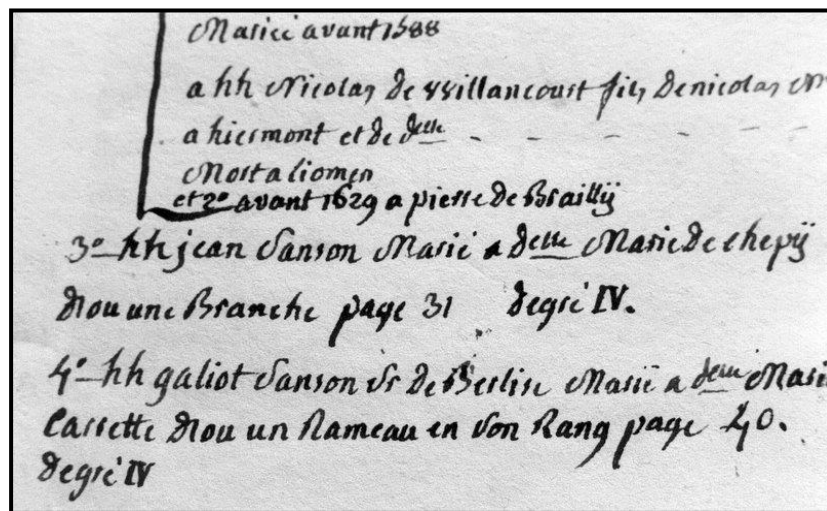 Mariéé avant 1588
a hh Nicolas de Willancourt fils de nicolas
a hiermont et de delle - - - - - -
Mort a liomer
et 2º avant 1629 a pierre de Braillÿ
3º hh jean Sanson Marié a delle Marie de chepÿ
Dou une Branche page 31 degré IV.
4º hh galiot Sanson Sr de Berlise Marié a delle Marie
Carrette Dou un Rameau en son Rang page 40.
degré IV